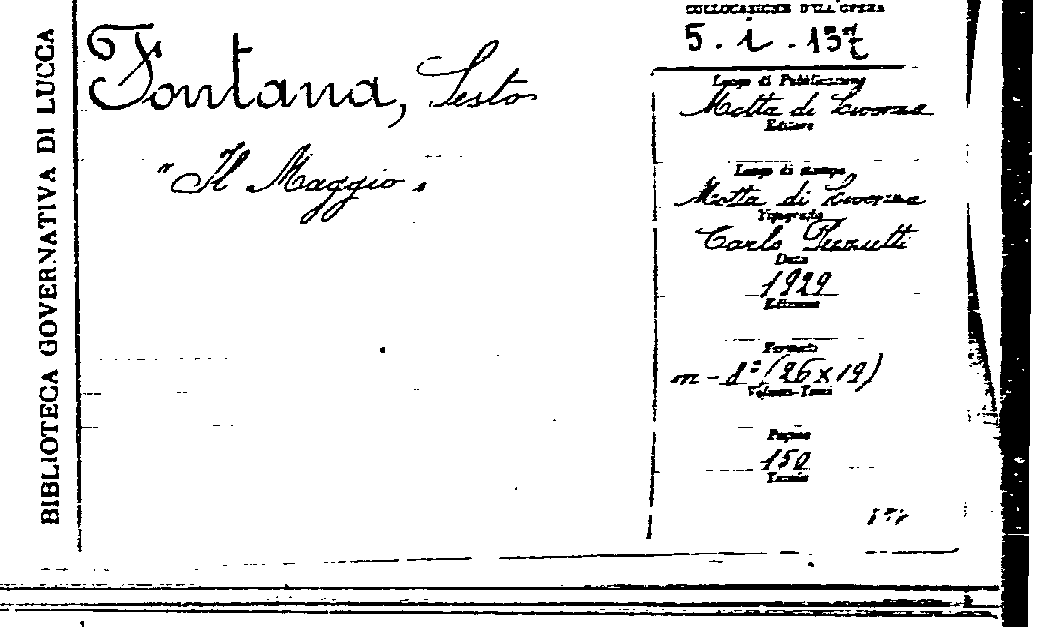 BIBLIOTECA GOVERNATIVA DI LUCCA
Fontana, Sesto
"Il Maggio"
COLLOCAZIONE DELL'OPERA
5. i. 137
Luogo di Pubblicazione
Motta di Livenza
Editore
Luogo di stampa
Motta di Livenza
Tipografo
Carlo
Data
1929
Edizione
Formato
m-8º (26x19)
Volume-Tomo
Pagine
150
Tavole